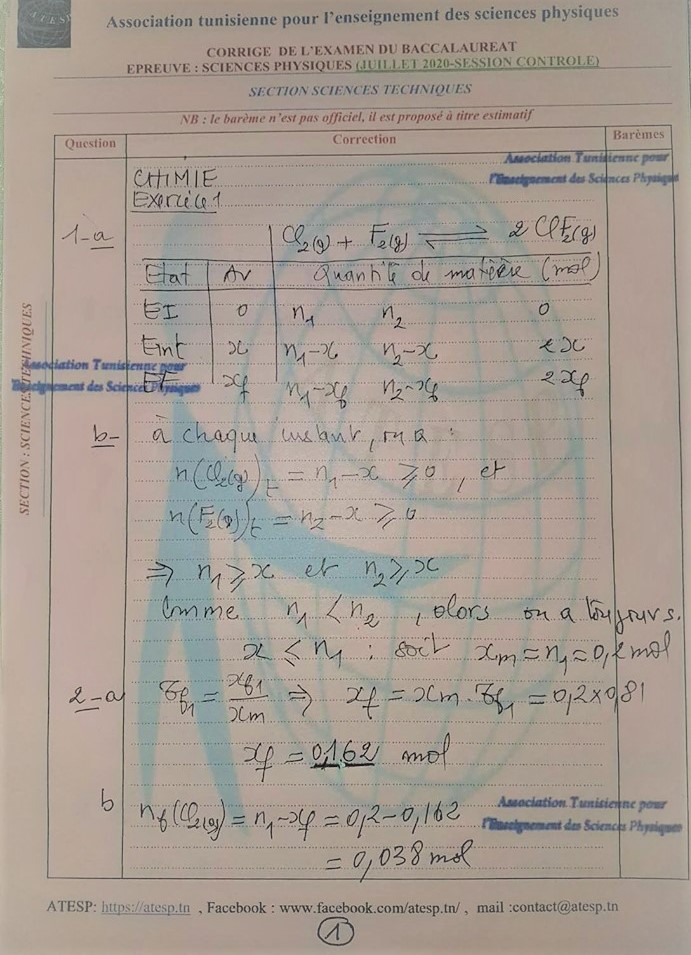 ATESP
Association tunisienne pour l'enseignement des sciences physiques
CORRIGE DE L'EXAMEN DU BACCALAUREAT
EPREUVE : SCIENCES PHYSIQUES (JUILLET 2020-SESSION CONTROLE)
SECTION SCIENCES TECHNIQUES
NB : le barème n'est pas officiel, il est proposé à titre estimatif
Question Correction Barèmes
Association Tunisienne pour
l'Enseignement des Sciences Physiques
CHIMIE
Exercice 1
1-a Cl2(g) + F2(g) ⇌ 2 ClF2(g)
Etat Av Quantité de matière (mol)
EI 0 n1 n2 0
Eint x n1-x n2-x 2x
Association Tunisienne pour
l'Enseignement des Sciences Physiques
EF xf n1-xf n2-xf 2xf
SECTION : SCIENCES TECHNIQUES
b- à chaque instant, on a :
n(Cl2(g))t = n1-x ⩾ 0 , et
n(F2(g))t = n2-x ⩾ 0
⇒ n1 ⩾ x et n2 ⩾ x
Comme n1 < n2 , alors on a toujours.
x ⩽ n1 : soit xm = n1 = 0,2 mol
2-a τf1 = xf1/xm ⇒ xf = xm . τf1 = 0,2 x 0,81
xf = 0,162 mol
b nf(Cl2(g)) = n1-xf = 0,2-0,162
Association Tunisienne pour
l'Enseignement des Sciences Physiques
= 0,038 mol
ATESP: https://atesp.tn , Facebook : www.facebook.com/atesp.tn/ , mail :contact@atesp.tn
1